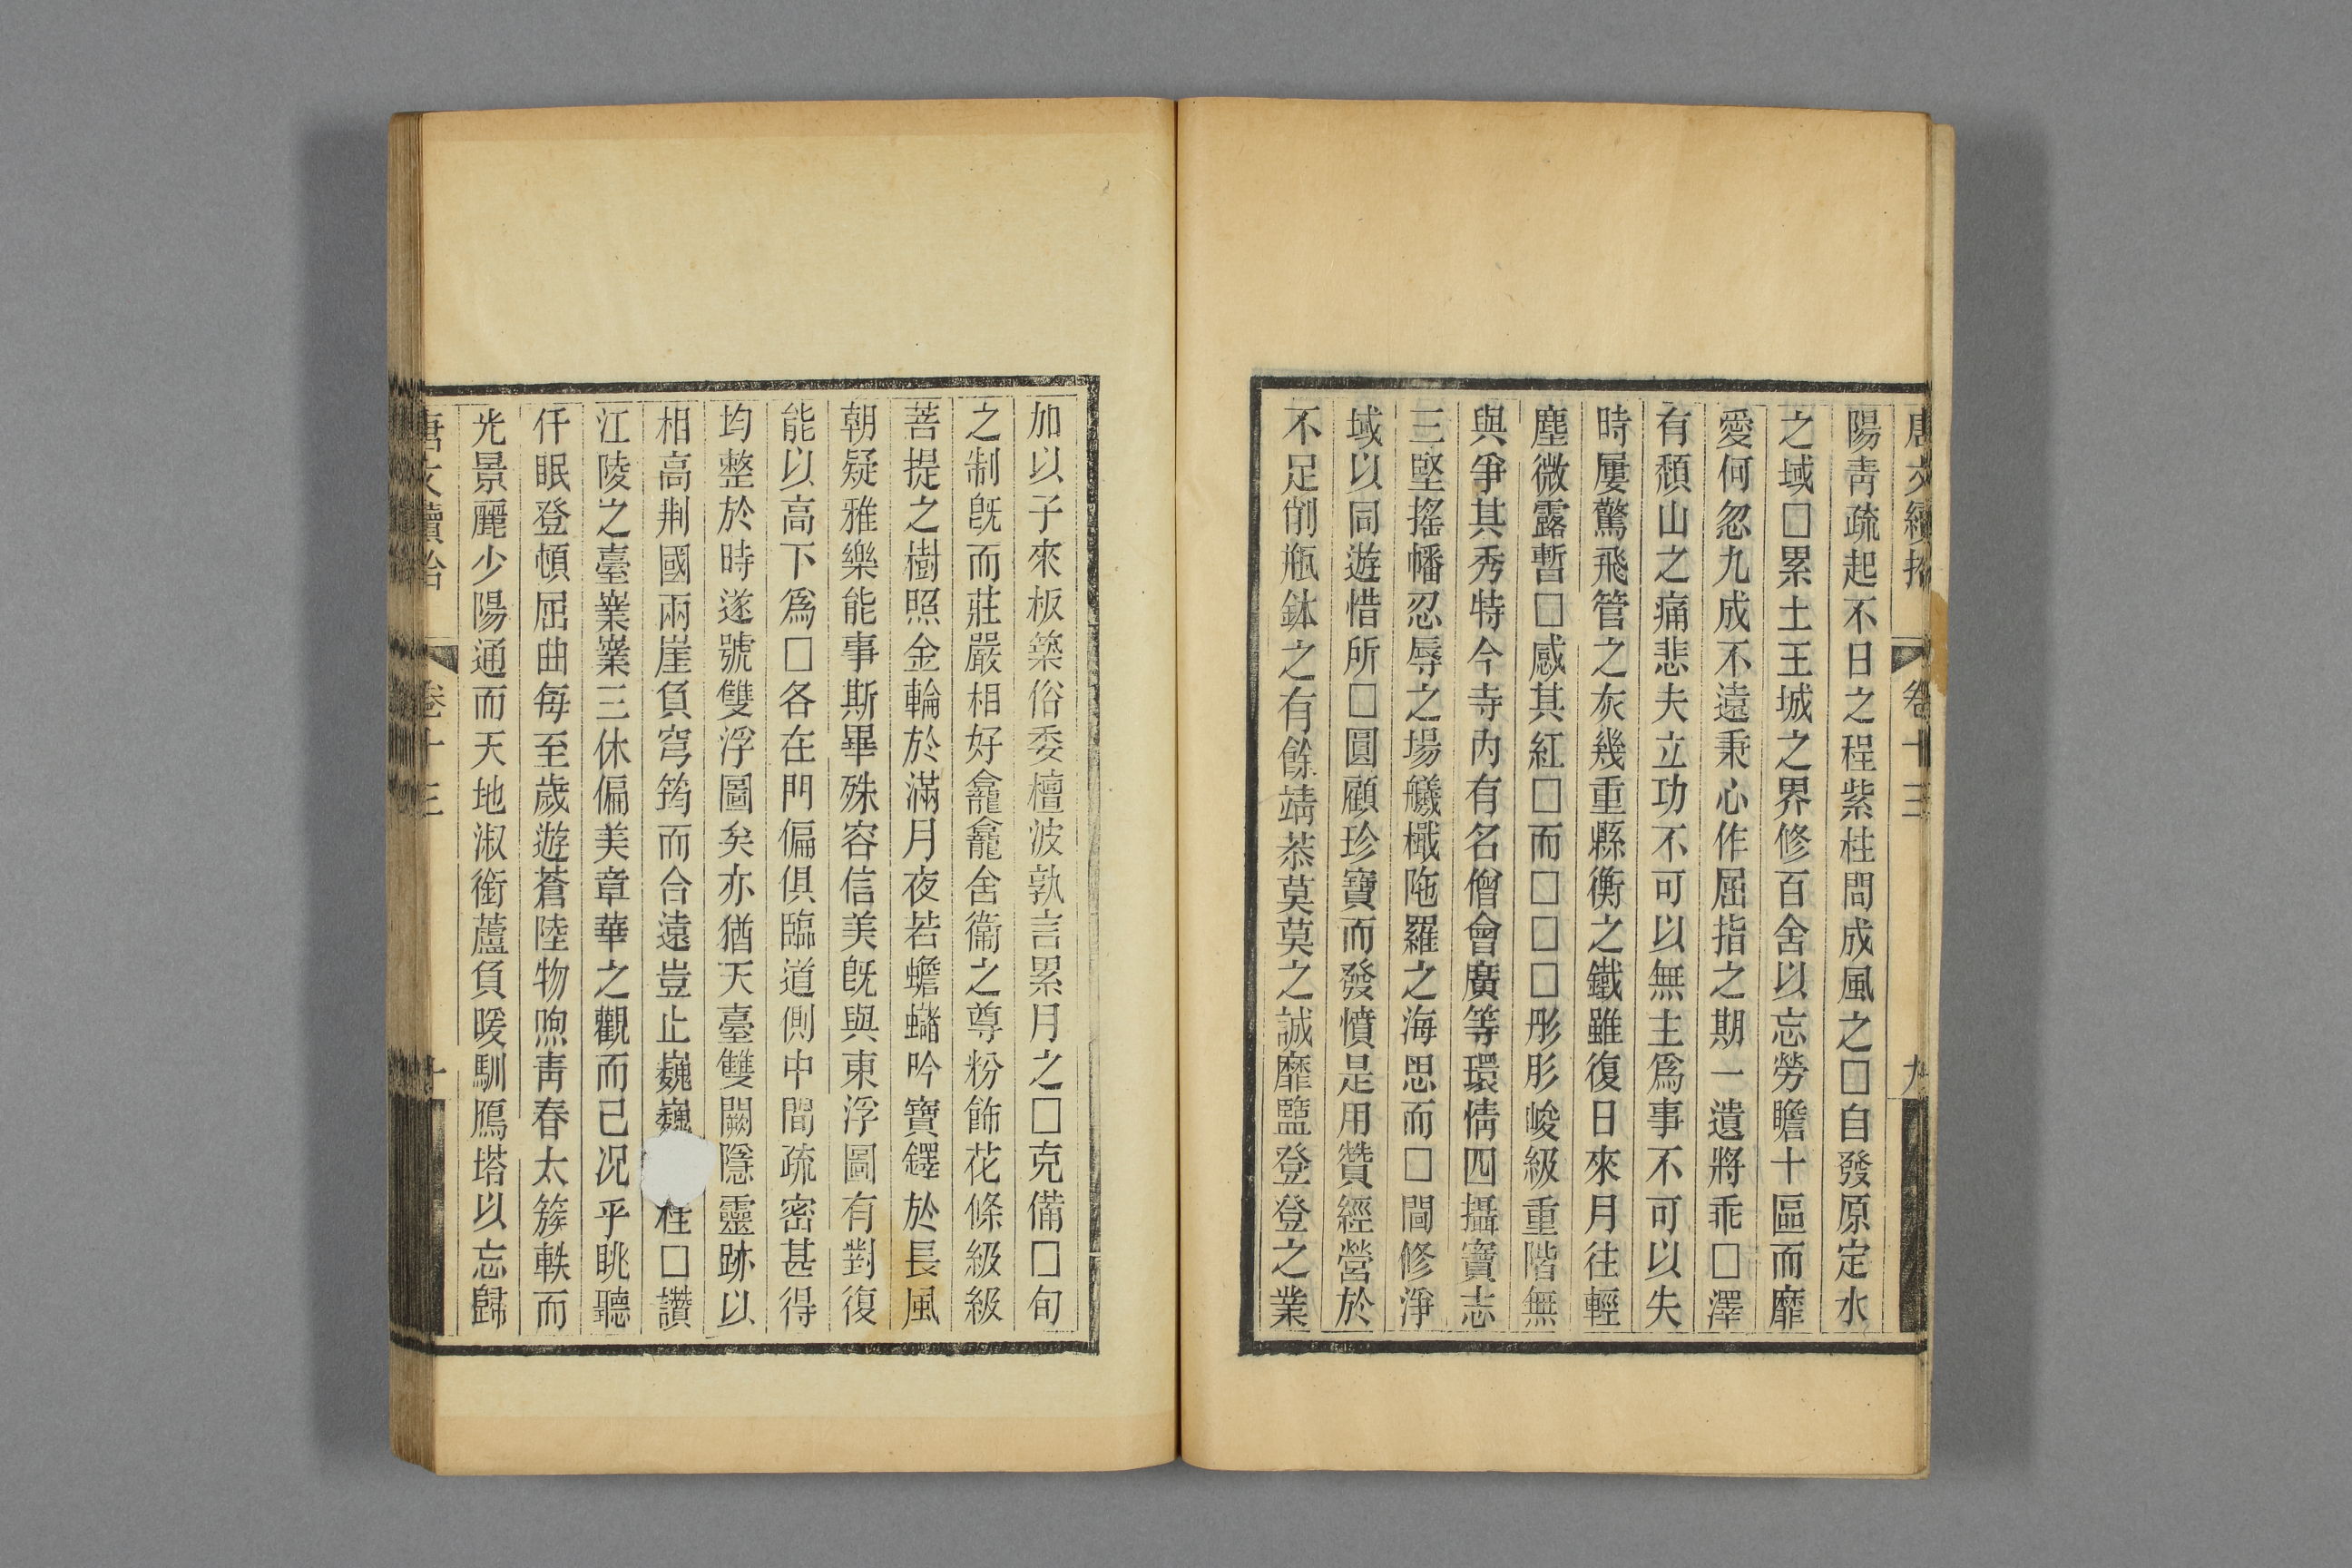 唐文續拾 卷十三 九
陽靑疏起不日之程紫柱問成風之□自發原定水
之域□累土王城之界修百舍以忘勞瞻十區而靡
愛何忽九成不遠秉心作屈指之期一遺將乖□澤
有頹山之痛悲夫立功不可以無主爲事不可以失
時屢驚飛管之灰幾重縣衡之鐵雖復日來月往輕
塵微露暫□感其紅□而□□□彤彤峻級重階無
與爭其秀特今寺內有名僧會廣等環情四攝寶志
三堅搖幡忍辱之場艤檝陁羅之海思而□間修淨
域以同遊惜所□圓顧珍寶而發憤是用贊經營於
不足削瓶鉢之有餘靖恭莫莫之誠靡盬登登之業
加以子來板築俗委檀波孰言累月之□克備□旬
之制旣而莊嚴相好龕龕舍衞之尊粉飾花條級級
菩提之樹照金輪於滿月夜若蟾蠩吟寶鐸於長風
朝疑雅樂能事斯畢殊容信美旣與東浮圖有對復
能以高下爲□各在門偏俱臨道側中間疏密甚得
均整於時遂號雙浮圖矣亦猶天臺雙闕隱靈跡以
相高荆國兩崖負穹筠而合遠豈止巍巍柱□讚
江陵之臺嶪嶪三休偏美章華之觀而已况乎眺聽
仟眠登頓屈曲每至歲遊蒼陸物煦靑春太簇軼而
光景麗少陽通而天地淑銜蘆負暖馴鴈塔以忘歸
唐文續拾 卷十三 十